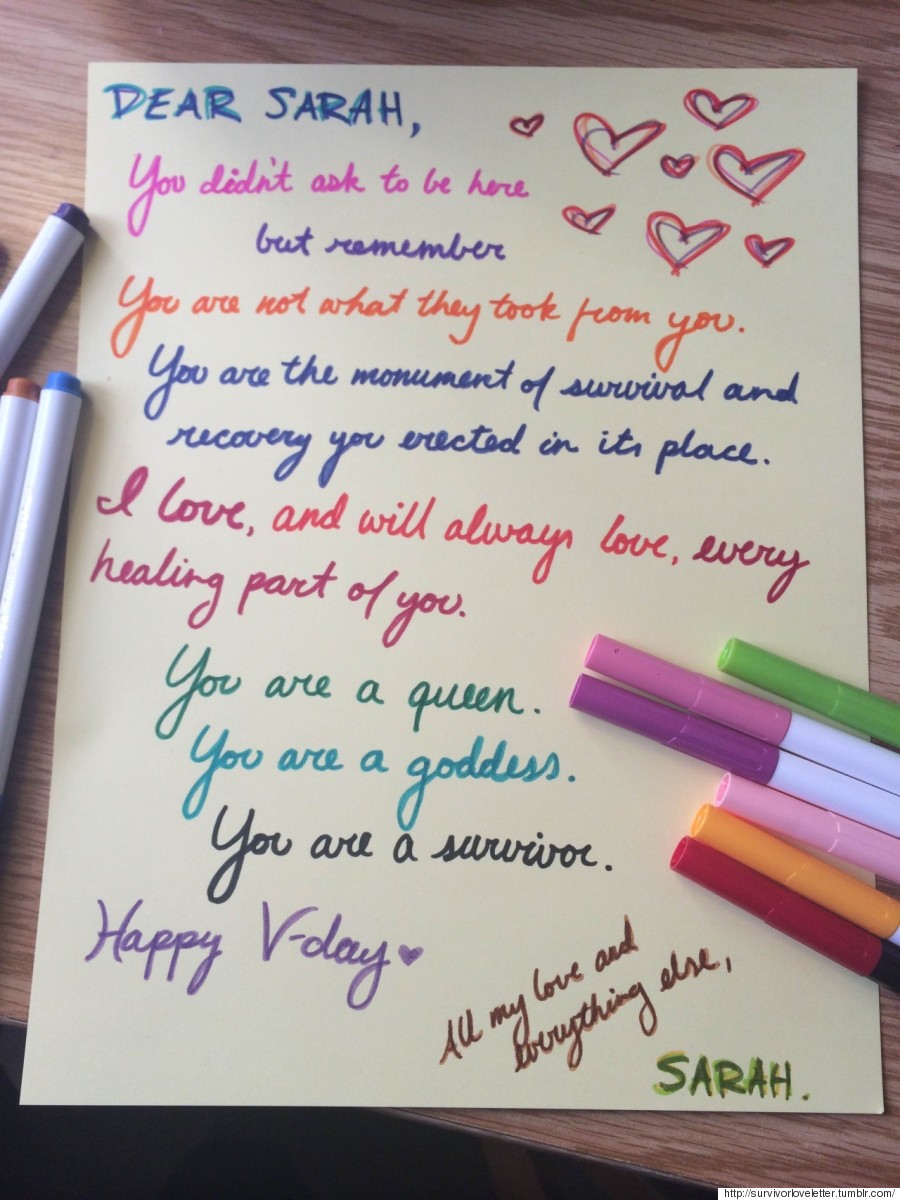 DEAR SARAH,
You didn't ask to be here
but remember
You are not what they took from you.
You are the monument of survival and
recovery you erected in its place.
I love, and will always love, every
healing part of you.
You are a queen.
You are a goddess.
You are a survivor.
Happy V-day
All my love and
everything else,
SARAH.
http://survivorloveletter.tumblr.com/